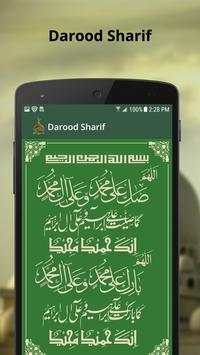 Darood Sharif
2:28 PM
Darood Sharif
بسم الله الرحمن الرحيم
اللهم
صل على محمد وعلى آل محمد
كما صليت على إبراهيم وعلى آل إبراهيم
إنك حميد مجيد
اللهم
بارك على محمد وعلى آل محمد
كما باركت على إبراهيم وعلى آل إبراهيم
إنك حميد مجيد